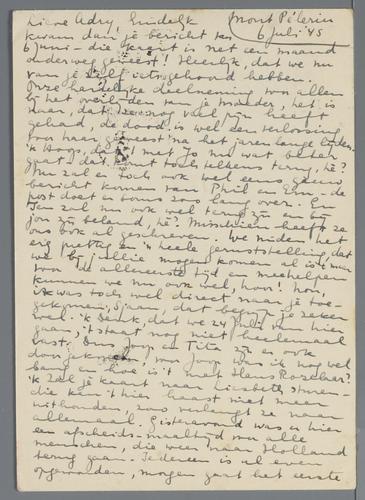 Lieve Adry, Eindelijk Mont Pélerin
kwam dan je bericht van 6 Juli '45
6 Juni - die kaart is net een maand
onderweg geweest! Heerlijk, dat we nu
van je zelf iets gehoord hebben.
Onze hartelijke deelneming van allen
bij het overlijden van je Moeder, het is
waar, dat ze nog veel pijn heeft
gehad, de dood is wel een verlossing
voor haar geweest na het jaren lange lijden.
'k Hoop, dat met Jo nu wat beter
gaat, dat komt toch telkens terug, hè?
Nu zal er toch ook wel eens gauw
bericht komen van Phiel en de
post doet er soms zoo lang over. En
zal nu ook wel terug zijn en bij
jou zijn beland, hè? Misschien heeft ze
ons ook al geschreven. We vinden het
erg prettig en 'n heele geruststelling, dat
we bij jullie mogen komen al is 't maar
voor de allereerste tijd en meehelpen
kunnen we nu ook wel, hoor! Nou,
ik was toch wel direct naar je toe-
gekomen, Sjaan, dat begrijp je zeker
wel. 'k Denk, dat we 24 Juli van hier
gaan, 't staat nog niet heelemaal
vast. Dus Joop en Tita zijn er ook
door gekomen, voor Joop was ik nog wel
bang en hoe is 't met Hans Rozeboer?
'k Zal je kaart naar Liesbeth sturen -
die kan 't hier haast niet meer
uithouden, zoo verlangt ze naar
allemaal. Gisteravond was er hier
een afscheids-maaltijd van alle
menschen, die weer naar Holland
terug gaan. Iedereen is al even
opgewonden, morgen gaat het eerste